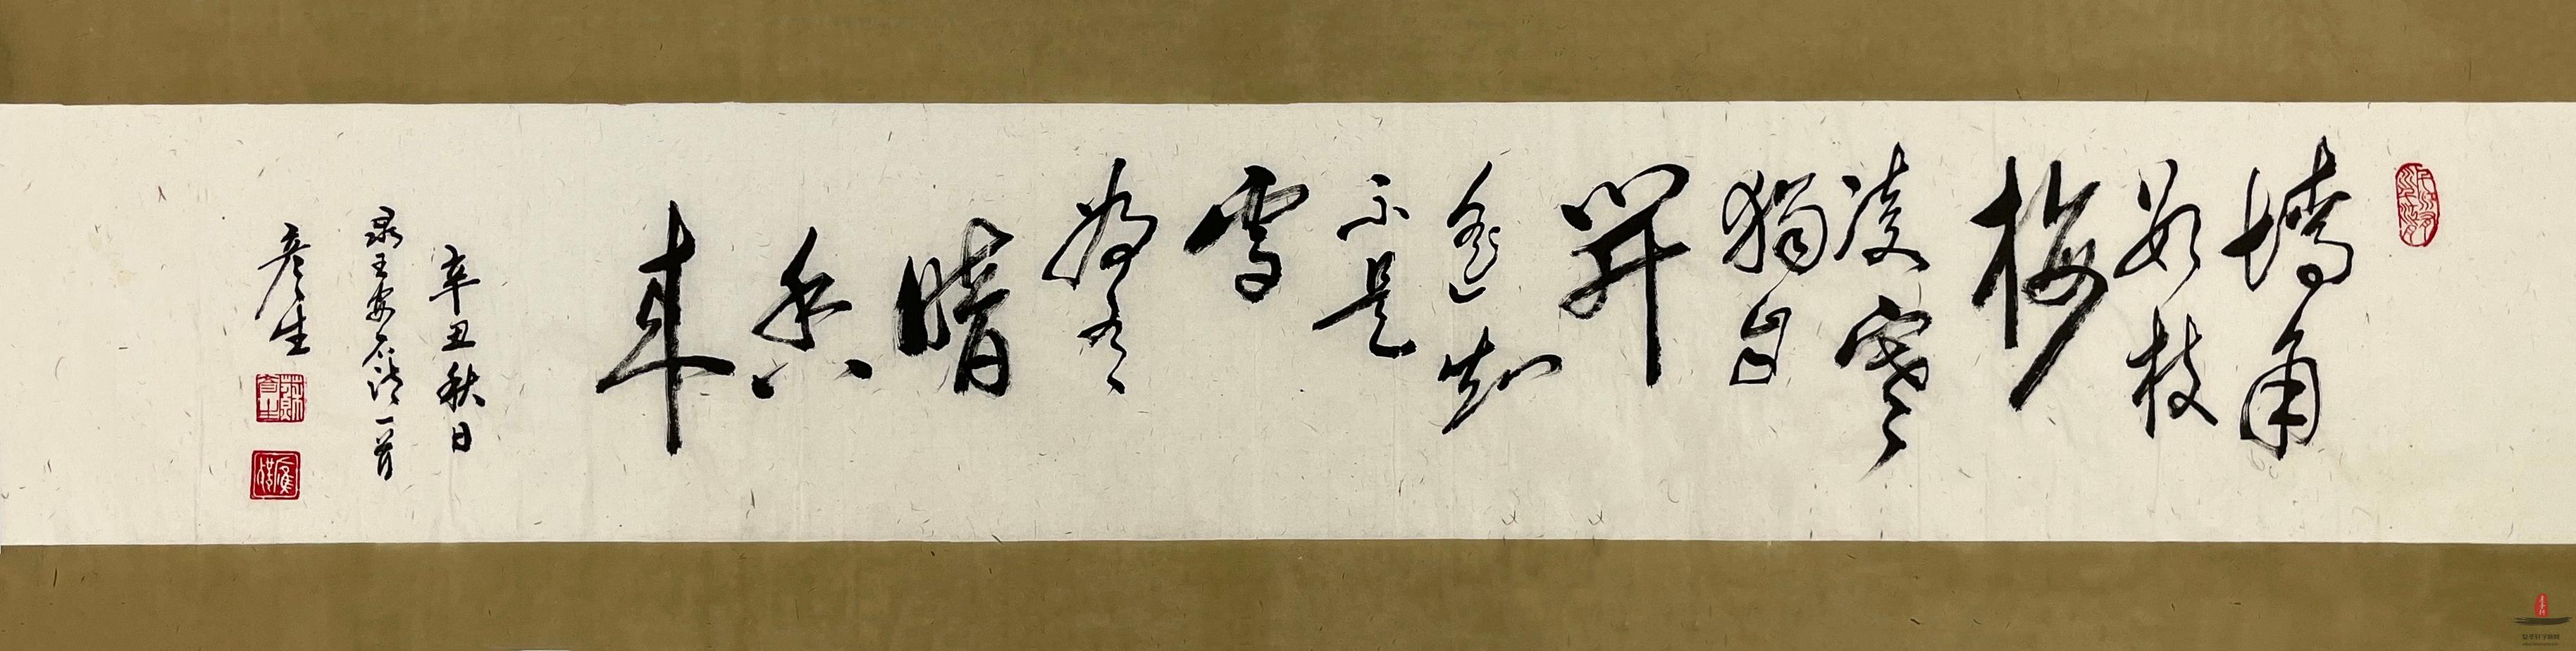 墙角
数枝
梅
凌寒
獨自
開
遥知
不是
雪
为有
暗
香
来
辛丑秋日
录王安石诗一首
彦生